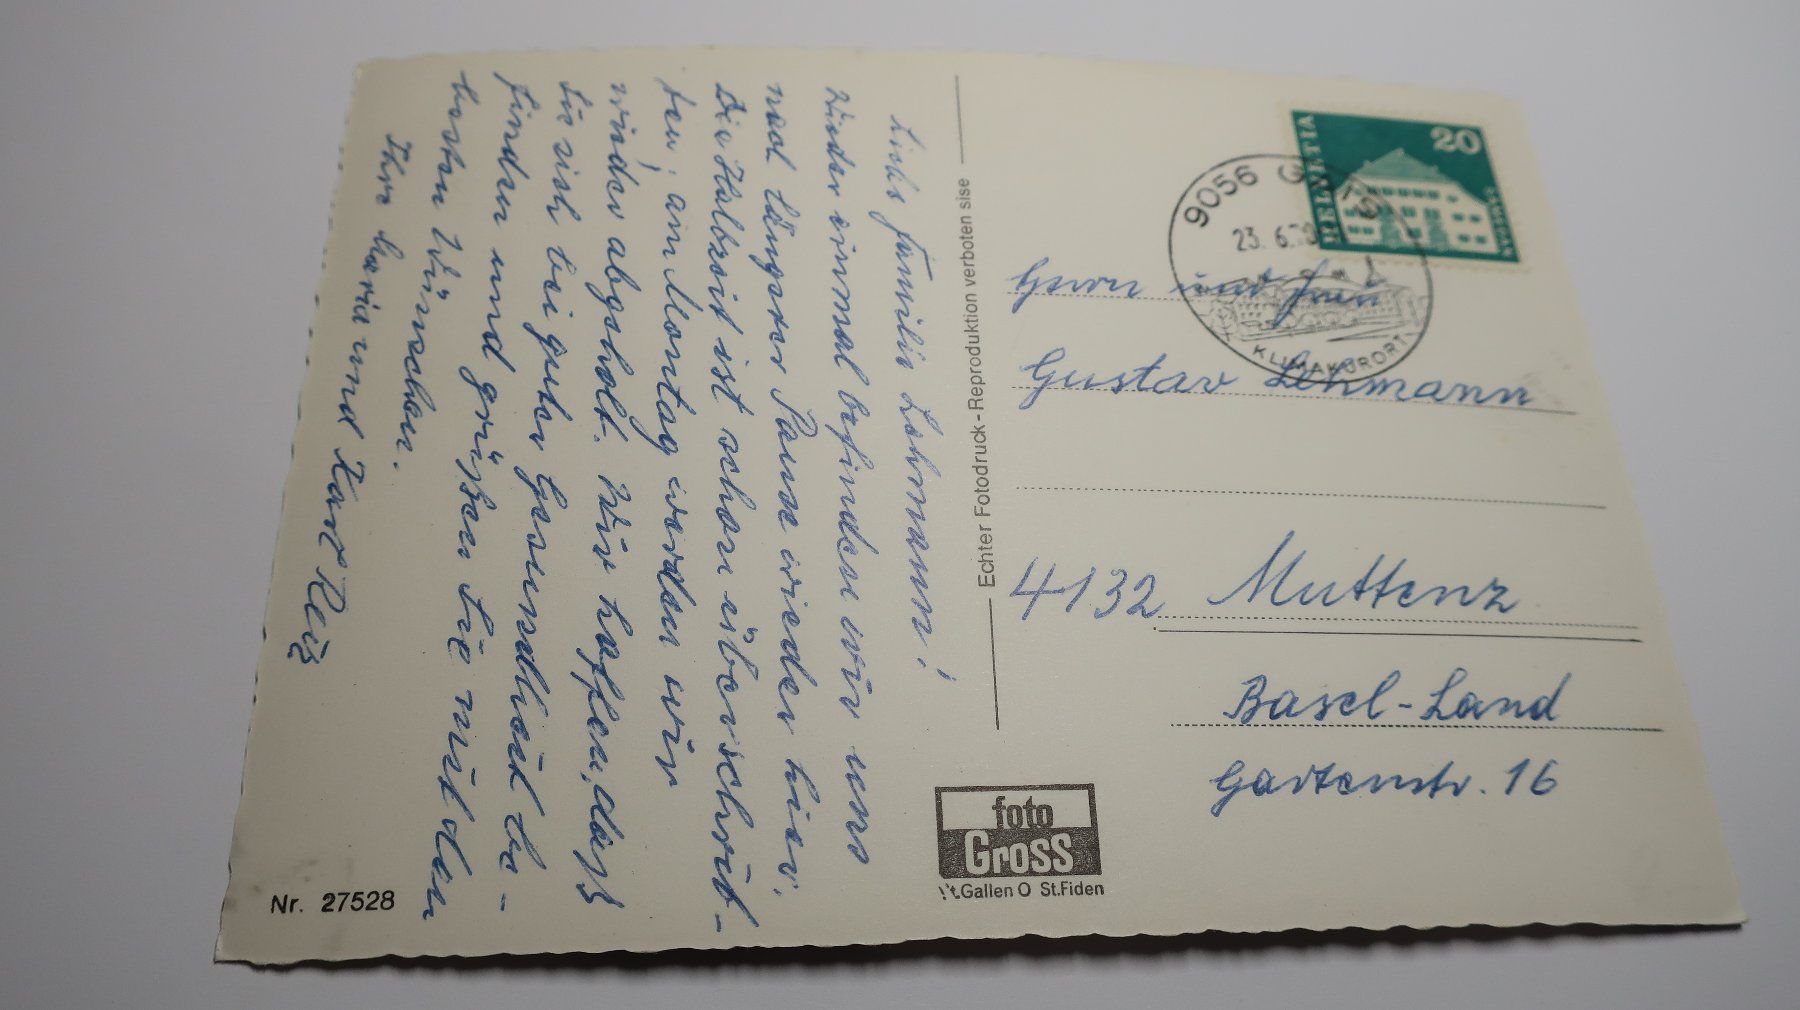 Liebe Familie Lehmann!
Wieder einmal befinden wir uns
nach längerer Pause wieder hier.
Die Halbzeit ist schon überschrit-
ten, am Montag werden wir
wieder abgeholt. Wir hoffen, daß
Sie sich bei guter Gesundheit be-
finden und grüßen Sie mit den
besten Wünschen.
Ihre Maria und Karl
Nr. 27528
Echter Fotodruck - Reproduktion verboten sise
foto
Gross
St.Gallen O St.Fiden
HELVETIA
20
9056
23. 6.
KLIMAKURORT
Herrn und Frau
Gustav Lehmann
4132 Muttenz
Basel-Land
Gartenstr. 16